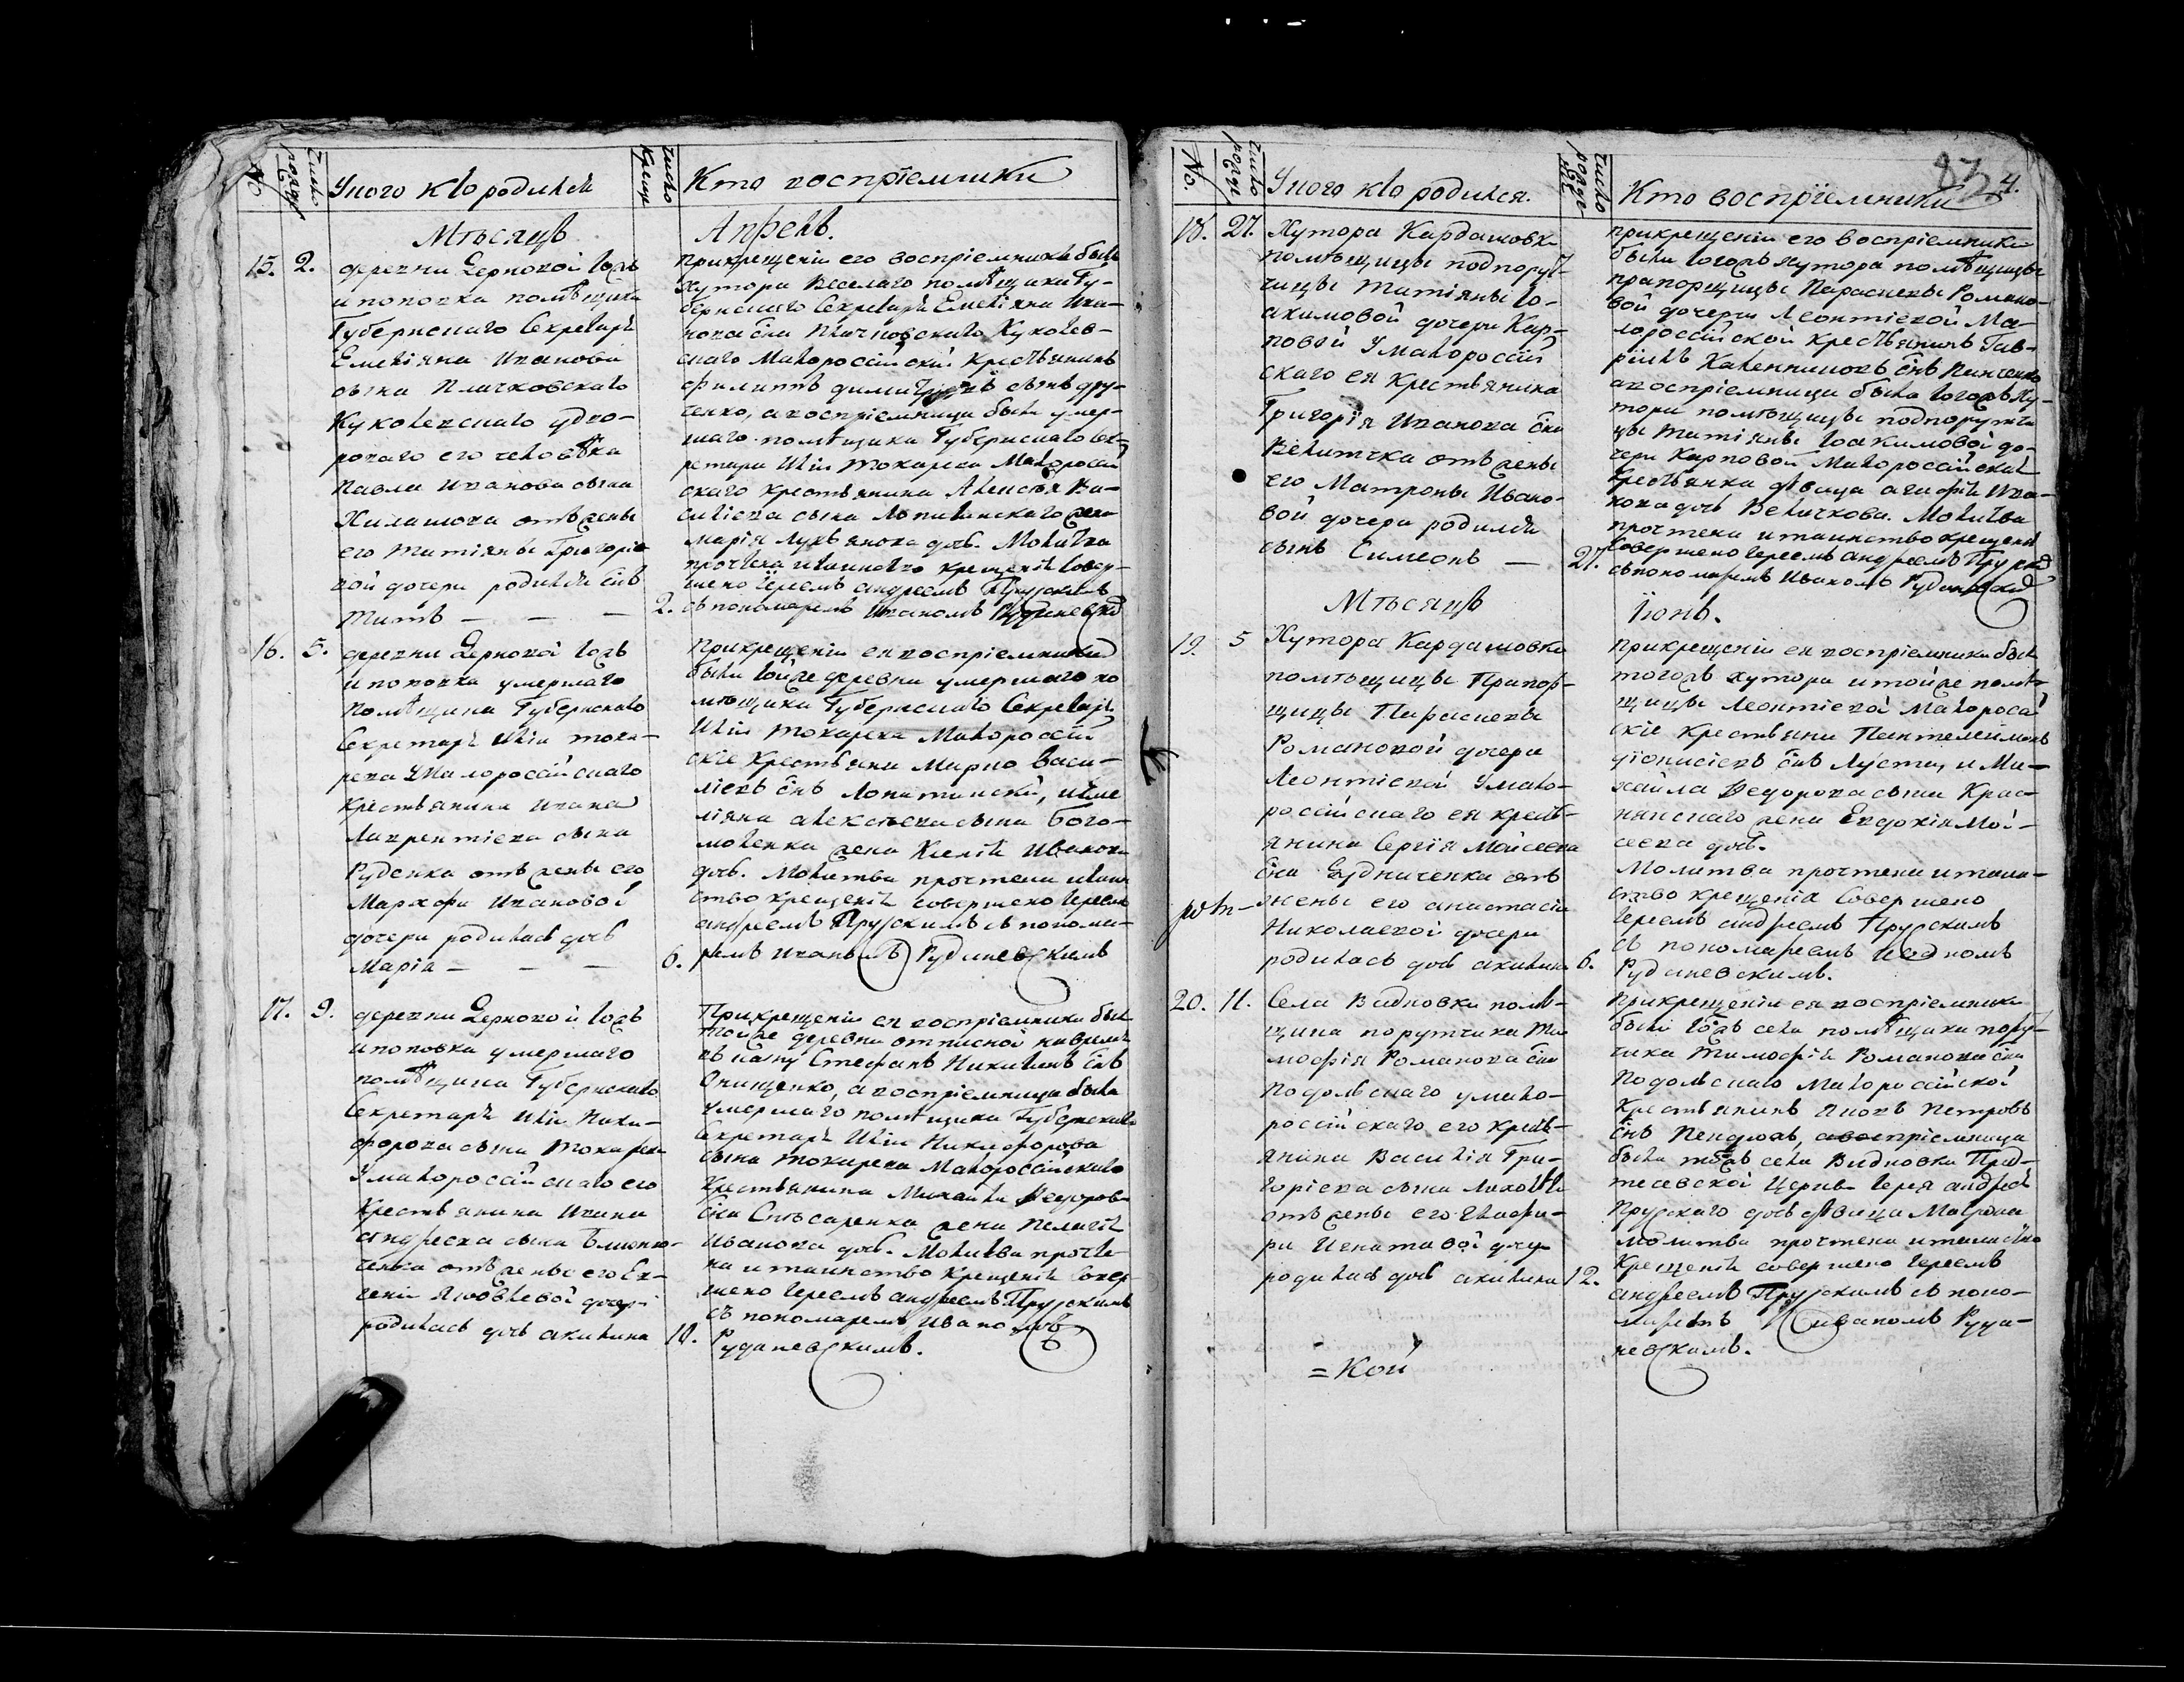 No
число рожде
У кого кто родился
число креще
Кто воспрiемники
Мѣсяцъ
Апрель.
15. 2.
деревни Терновой тожъ
и поповка помѣщика
Губернскаго Секретаря
Емелiяна Иванова
сына Плачковскаго
Куколевскаго удво-
роваго его человѣка
Павла Иванова сына
отъ жены
его Татiяны Григорiе
вой дочери родился снъ
Титъ — — —
2.
прикрещенiи его воспрiемники были
Хутора Веселаго помѣщика Гу-
бернскаго Секретаря Емелiяна Ива-
нова сна Плачковскаго Куколев-
скаго Малороссiйскiй Крестьянинъ
Филиппъ Димитрiевъ сынъ
ченко, а воспрiемница была умер-
шаго помѣщика Губернскаго сек-
ретаря Илiи Токарева Малороссiй
скаго крестьянина Алексѣя Ва-
силiева сына Лопатинскаго жена
марiя Лукьянова дочь. Молитва
прочтена итаинство крещенiя совер-
шено Iереемъ андреемъ Прускимъ
съ пономаремъ Иваномъ
16. 5.
деревни Терновой тожъ
и поповка умершаго
Помѣщика Губернскаго
Секретаря Илiи тока-
рева У малороссiйскаго
крестьянина Ивана
Лаврентiева сына
Руденка отъ жены его
Марфы Ивановой
дочери родилась дочь
Марiя — — —
6.
Прикрещенiи ея воспрiемники
были той же деревни умершаго по
мѣщика Губернскаго Секретаря
Илiи Токарева Малороссiй
скiе Крестьяни Марко Васи-
лiевъ снъ Лопатинскiй, иЕме
лiяна алексѣева сына Бого-
моленка жена Иванова
дочь. Молитва прочтена итаин
ство крещенiя совершено Iереемъ
андреемъ Прускимъ съ понома-
ремъ Иваномъ Руданевскимъ
17. 9.
деревни Терновой тожъ
и поповка умершаго
помѣщика Губернскаго
Секретаря Илiи Ники-
форова сына Токарева
У малороссiйскаго его
Крестьянина Ивана
андреева сына
отъ жены его Ев-
генiи Яковлевой дочери
родилась дочь акилина
10.
Прикрещенiи ея воспрiемники были
тойже деревни отписной навремя
въ казну Стефанъ Никитинъ снъ
Онищенко, а воспрiемница была
умершаго помѣщика Губернскаго
Секретаря Илiи Никифорова
сына токарева Малороссiйскаго
Крестьянина Михаила Федорова
сна жена Пелагiя
Иванова дочь. Молитва прочте-
на и таинство Крещенiя совер-
шено Iереемъ андреемъ Прускимъ
съ пономаремъ Иваномъ
Руданевскимъ.
87 4.
No.
число рожде
У кого кто родился.
число
Кто воспрiемники
18. 27.
Хутора Кардашовки
помѣщицы подпору-
чицы Татiяны Iо-
акимовой дочери Кар-
повой У малороссiй
скаго ея крестьянина
Григорiя Иванова сна
Величка отъ жены
его Матроны Ивано-
вой дочери родился
сынъ Симеонъ —
27.
прикрещенiи его воспрiемники
были тогожъ хутора помѣщицы
прапорщицы Параскевы Романо-
вой дочери Леонтiевой Ма-
лороссiйской крестьянинъ Гав-
рiилъ снъ
авоспрiемница была тогожъ ху-
тора помѣщицы подпоручи
цы татiяны Iоакимовой до-
чери Карповой Малороссiйская
крестьянка дѣвица агафiя Ива-
нова дочь Величкова. Молитва
прочтена итаинство крещенiя
совершено Iереемъ андреемъ Прускимъ
съ пономаремъ Иваномъ
Мѣсяцъ
Iюнь.
19. 5
Хутора Кардашовки
помѣщицы Прапор-
щицы Параскевы
Романовой дочери
Леонтiевой У мало-
россiйскаго ея кресть-
янина Сергiя Мойсеева
сна отъ
жены его анастасiи
Николаевой дочери
родилась дочь акилина
6.
Прикрещенiи ея воспрiемники были
тогожъ хутора итойже помѣ-
щицы Леонтiевой Малороссiй
скiе крестьяни Пантелеимонъ
дiонисiевъ снъ и Ми-
хайла Федорова сына Крас-
нянскаго жена Евдокiя Мой-
сеева дочь.
Молитва прочтена итаин-
ство крещенiя совершено
Iереемъ андреемъ Прускимъ
съ пономаремъ Иваномъ
Руданевскимъ.
20. 11.
Села Видновки помѣ-
щика порутчика Ти
мофiя Романова сна
Подольскаго умало-
россiйскаго его кресть-
янина Василiя Гри-
горiева сына
отъ жены его Глафи-
ры Игнатовой дочери
родилась дочь акилина
12.
Прикрещенiи ея воспрiемники
были тогожъ села помѣщика пору-
чика Тимофiя Романова сна
Подольскаго Малороссiйской
Крестьянинъ Яковъ Петровъ
снъ авоспрiемница
была тогожъ села Видновки
Церкви Iерея андрея
Прускаго дочь дѣвица Матрона
молитва прочтена итаинство
Крещенiя совершено Iереемъ
андреемъ Прускимъ съ поно-
маремъ иваномъ Руда-
невскимъ.
=Кой